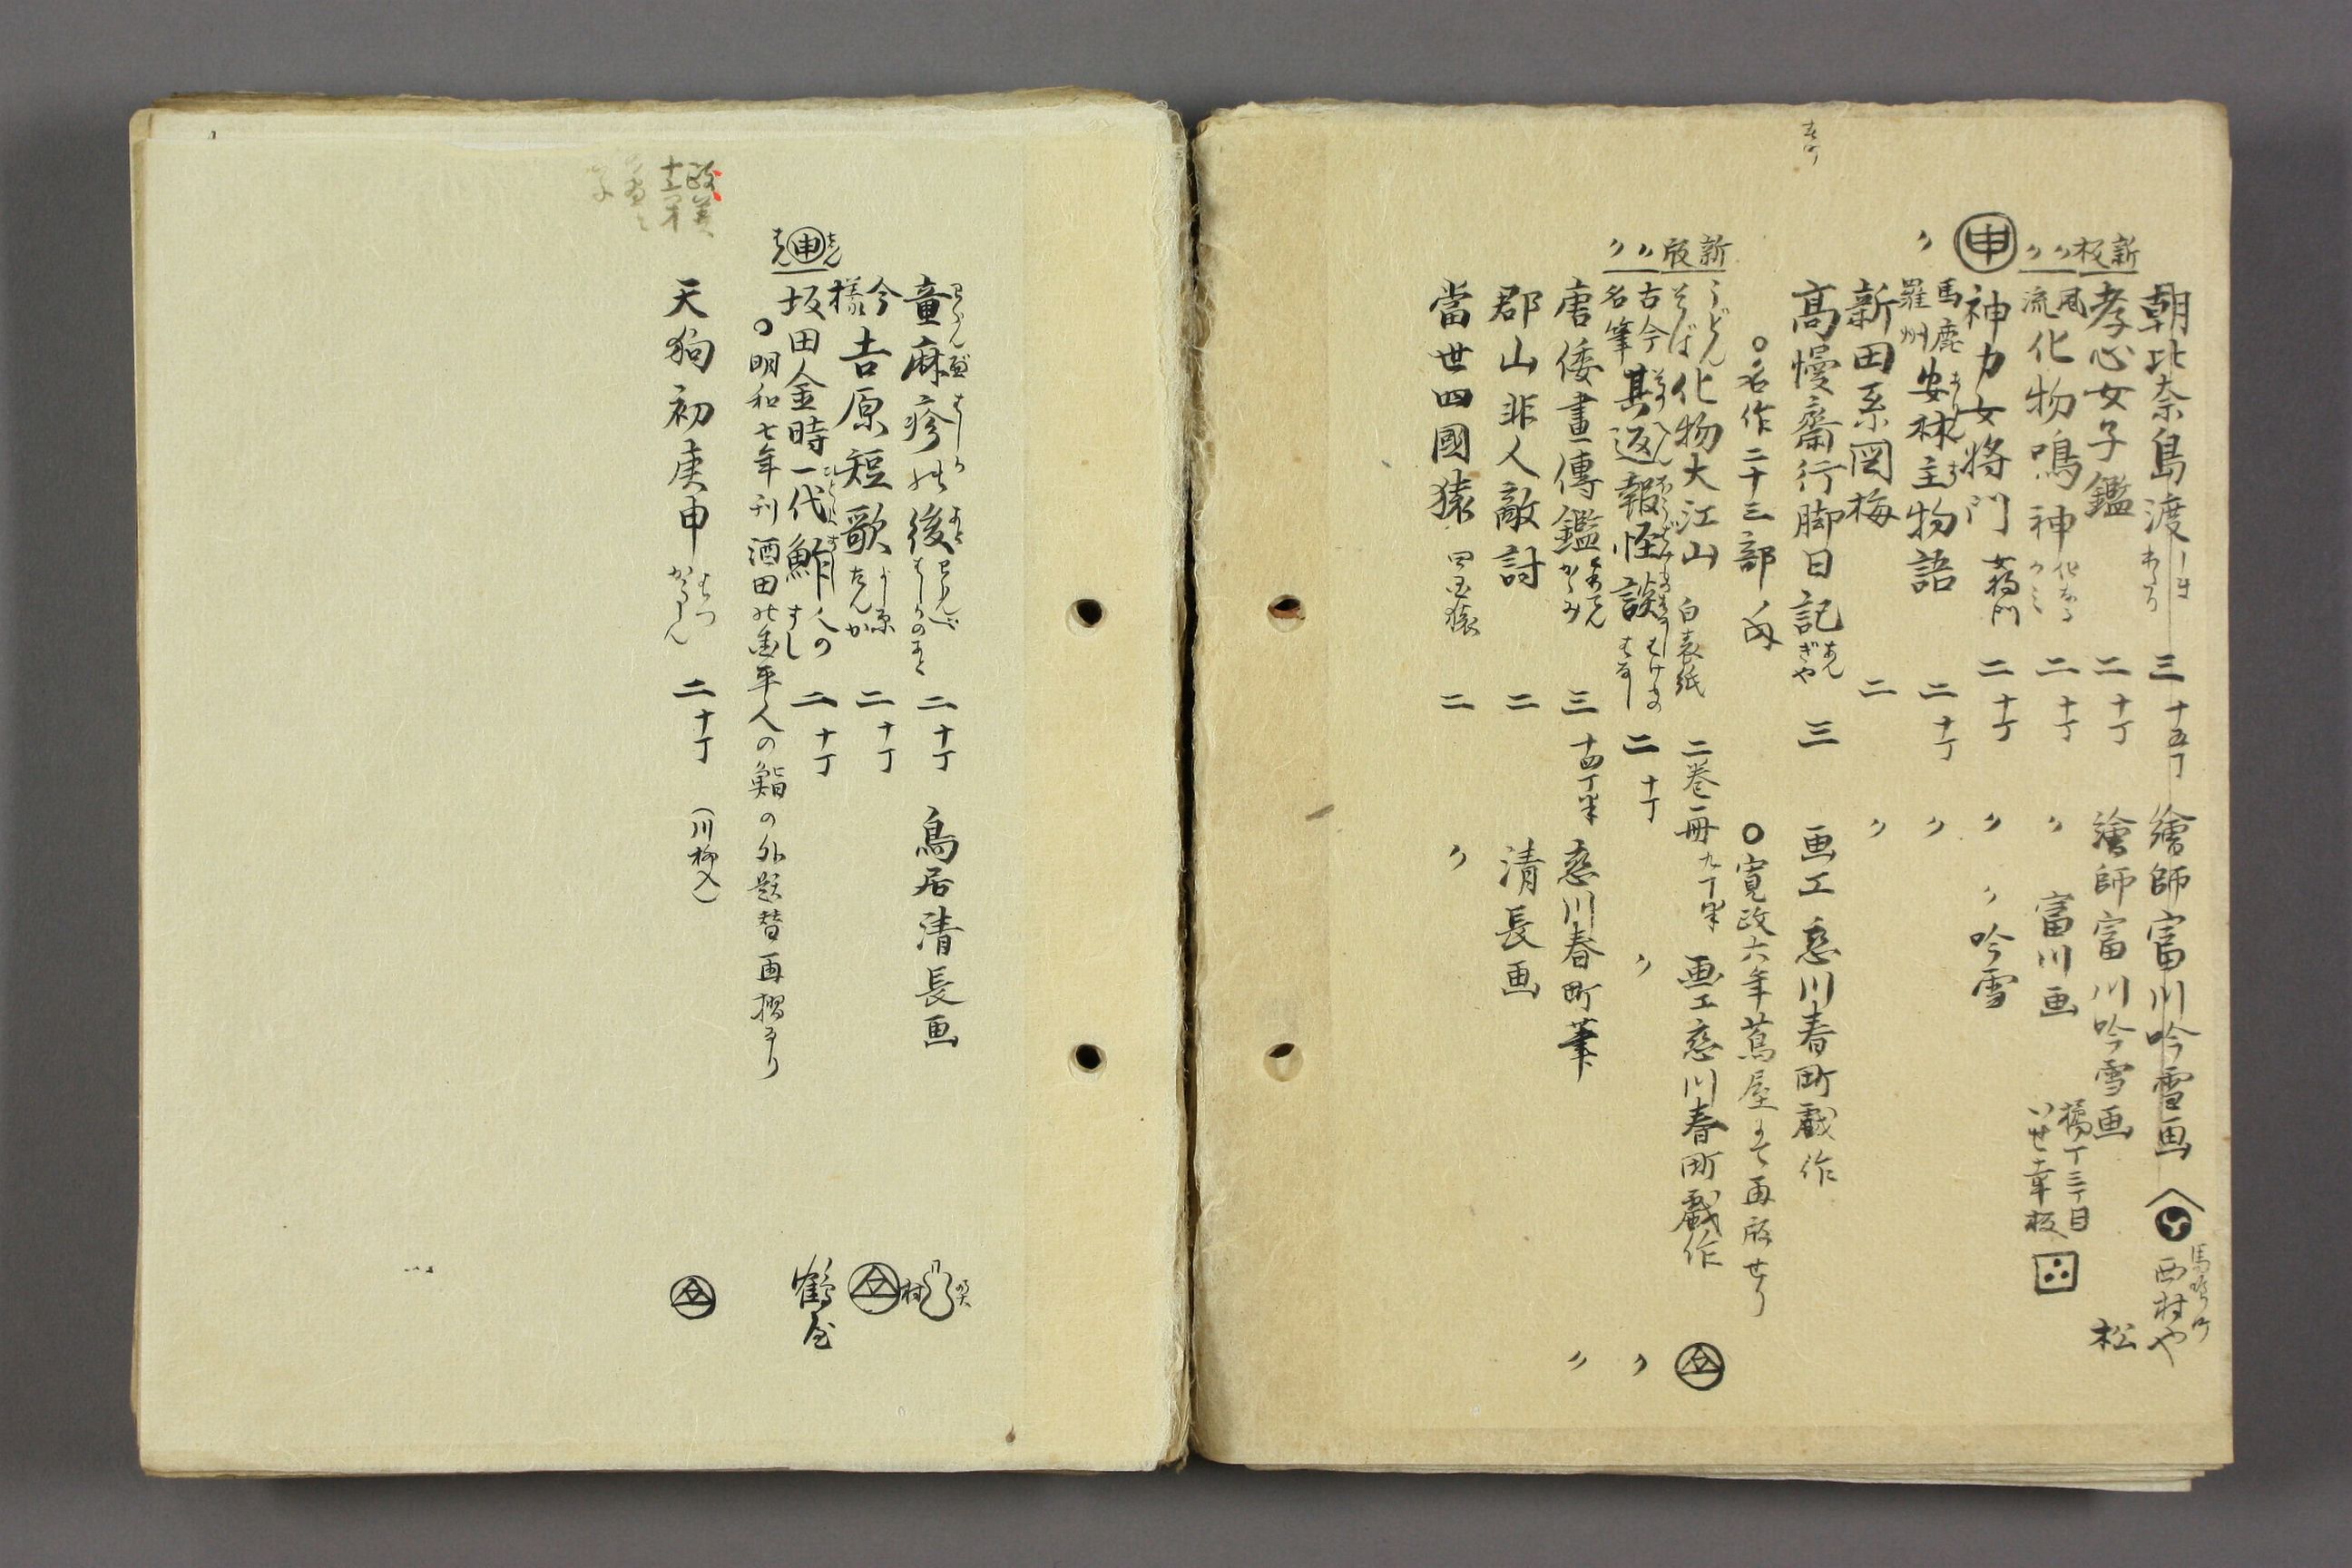 朝比奈島渡 三 十五丁 繪師富川吟雪画 馬喰町 西村や
新板 孝心女子鑑 二 十丁 繪師富川吟雪画 松
〃 風流 化物鳴神 二 十丁 〃 富川画 橘丁三丁目 いせ幸板
申 神力女将門 女将門 二 十丁 〃 〃 吟雪
馬鹿羅州 安林主物語 二 十丁 〃
〃 新田系図梅 二 〃
高慢齋行脚日記 あんぎや 三 画工 恋川春町戯作
〇名作二十三部ノ内 〇寛政六年蔦屋にて再版せり
新版 うどんそば 化物大江山 白表紙 二巻一冊 九丁半 画工恋川春町戯作
〃 古今名筆 其返報怪談 二 十丁 〃 〃
〃 唐倭畫傳鑑 三 十四丁半 恋川春町筆 〃
郡山非人敵討 二 清長画
當世四國猿 四国猿 二 〃
童麻疹の後 二 十丁 鳥居清長画 村
今様 吉原短歌 よし原たんか 二 十丁
申 坂田金時一代鮓 二 十丁 鶴屋
〇明和七年刊 酒田の金平人の鮨の外題替再摺なり
天狗初庚申 二 十丁 (川柳入)